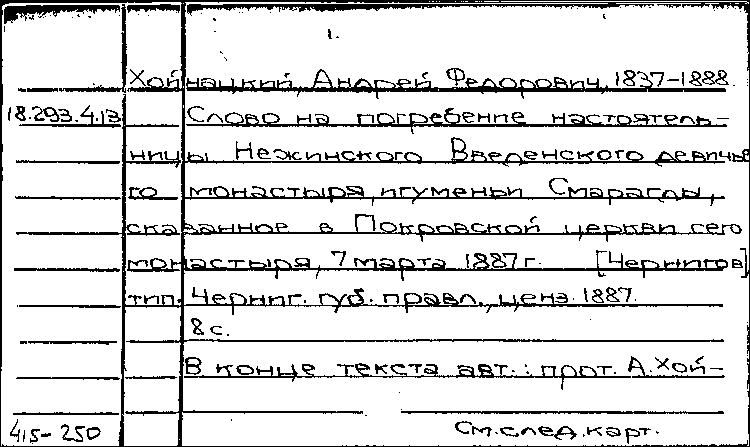 1.
Хойнацкий, Андрей Федорович, 1837-1888
18.293.4.13 Слово на погребение настоятель-
ницы Нежинского Введенского девичье
го монастыря, игумении Смарагды,
сказанное в Покровской церкви сего
монастыря, 7 марта 1887 г. [Чернигов]
тип. Черниг. губ. правл., ценз. 1887.
8 с.
В конце текста авт.: прот. А. Хой-
415-250 См. след. карт.